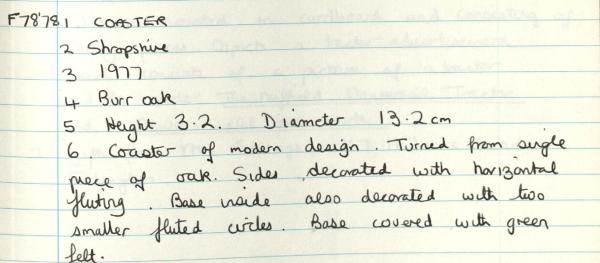 F78'78 1 COASTER
2 Shropshire
3 1977
4 Burr oak
5 Height 3.2. Diameter 13.2cm
6. Coaster of modern design. Turned from single
piece of oak. Sides decorated with horizontal
fluting. Base inside also decorated with two
smaller fluted circles. Base covered with green
felt.